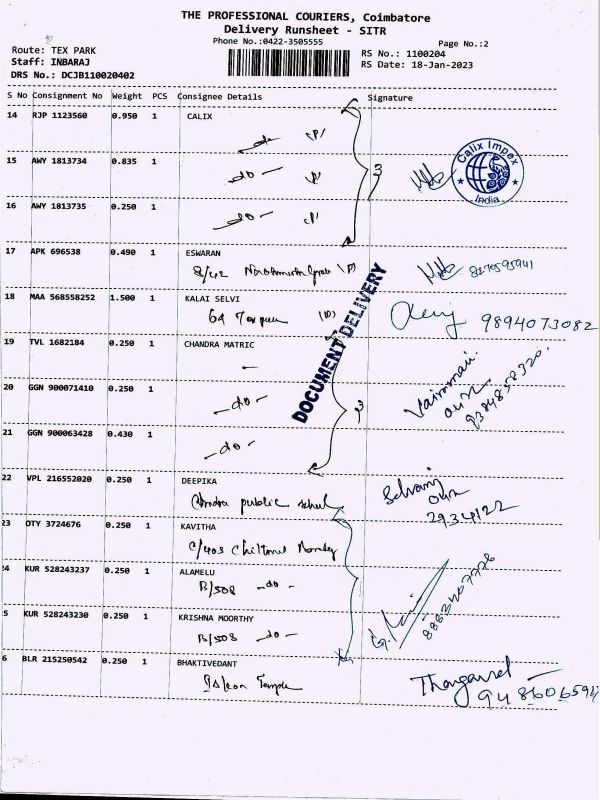 THE PROFESSIONAL COURIERS, Coimbatore
Delivery Runsheet - SITR
Phone No.:0422-3505555
Page No.:2
Route: TEX PARK
Staff: INBARAJ
DRS No.: DCJB110020402
RS No.: 1100204
RS Date: 18-Jan-2023
S No Consignment No Weight PCS Consignee Details Signature
14 RJP 1123560 0.950 1 CALIX
do (P)
15 AWY 1813734 0.835 1
do (P)
3
Calix Impex
India
16 AWY 1813735 0.250 1
do (P)
17 APK 696538 0.490 1 ESWARAN
8/42 (P)
8270595941
18 MAA 568558252 1.500 1 KALAI SELVI
64 (D)
9894073082
DOCUMENT DELIVERY
19 TVL 1682184 0.250 1 CHANDRA MATRIC
20 GGN 900071410 0.250 1
do
3
21 GGN 900063428 0.430 1
do
22 VPL 216552020 0.250 1 DEEPIKA
Chandra public school
Selvarij
2934122
23 OTY 3724676 0.250 1 KAVITHA
C/403
24 KUR 528243237 0.250 1 ALAMELU
B/508 do
5 KUR 528243230 0.250 1 KRISHNA MOORTHY
B/508 do
6 BLR 215250542 0.250 1 BHAKTIVEDANT
Iskon Temple
Thangavel